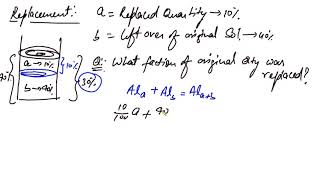 Replacement:
a = Replaced Quantity → 10%
b = Left over of original Sol → 40%
a → 10%
} 10%
30%
b → 40%
Q: What fraction of original qty was replaced?
Al_a + Al_b = Al_{a+b}
10/100 a +